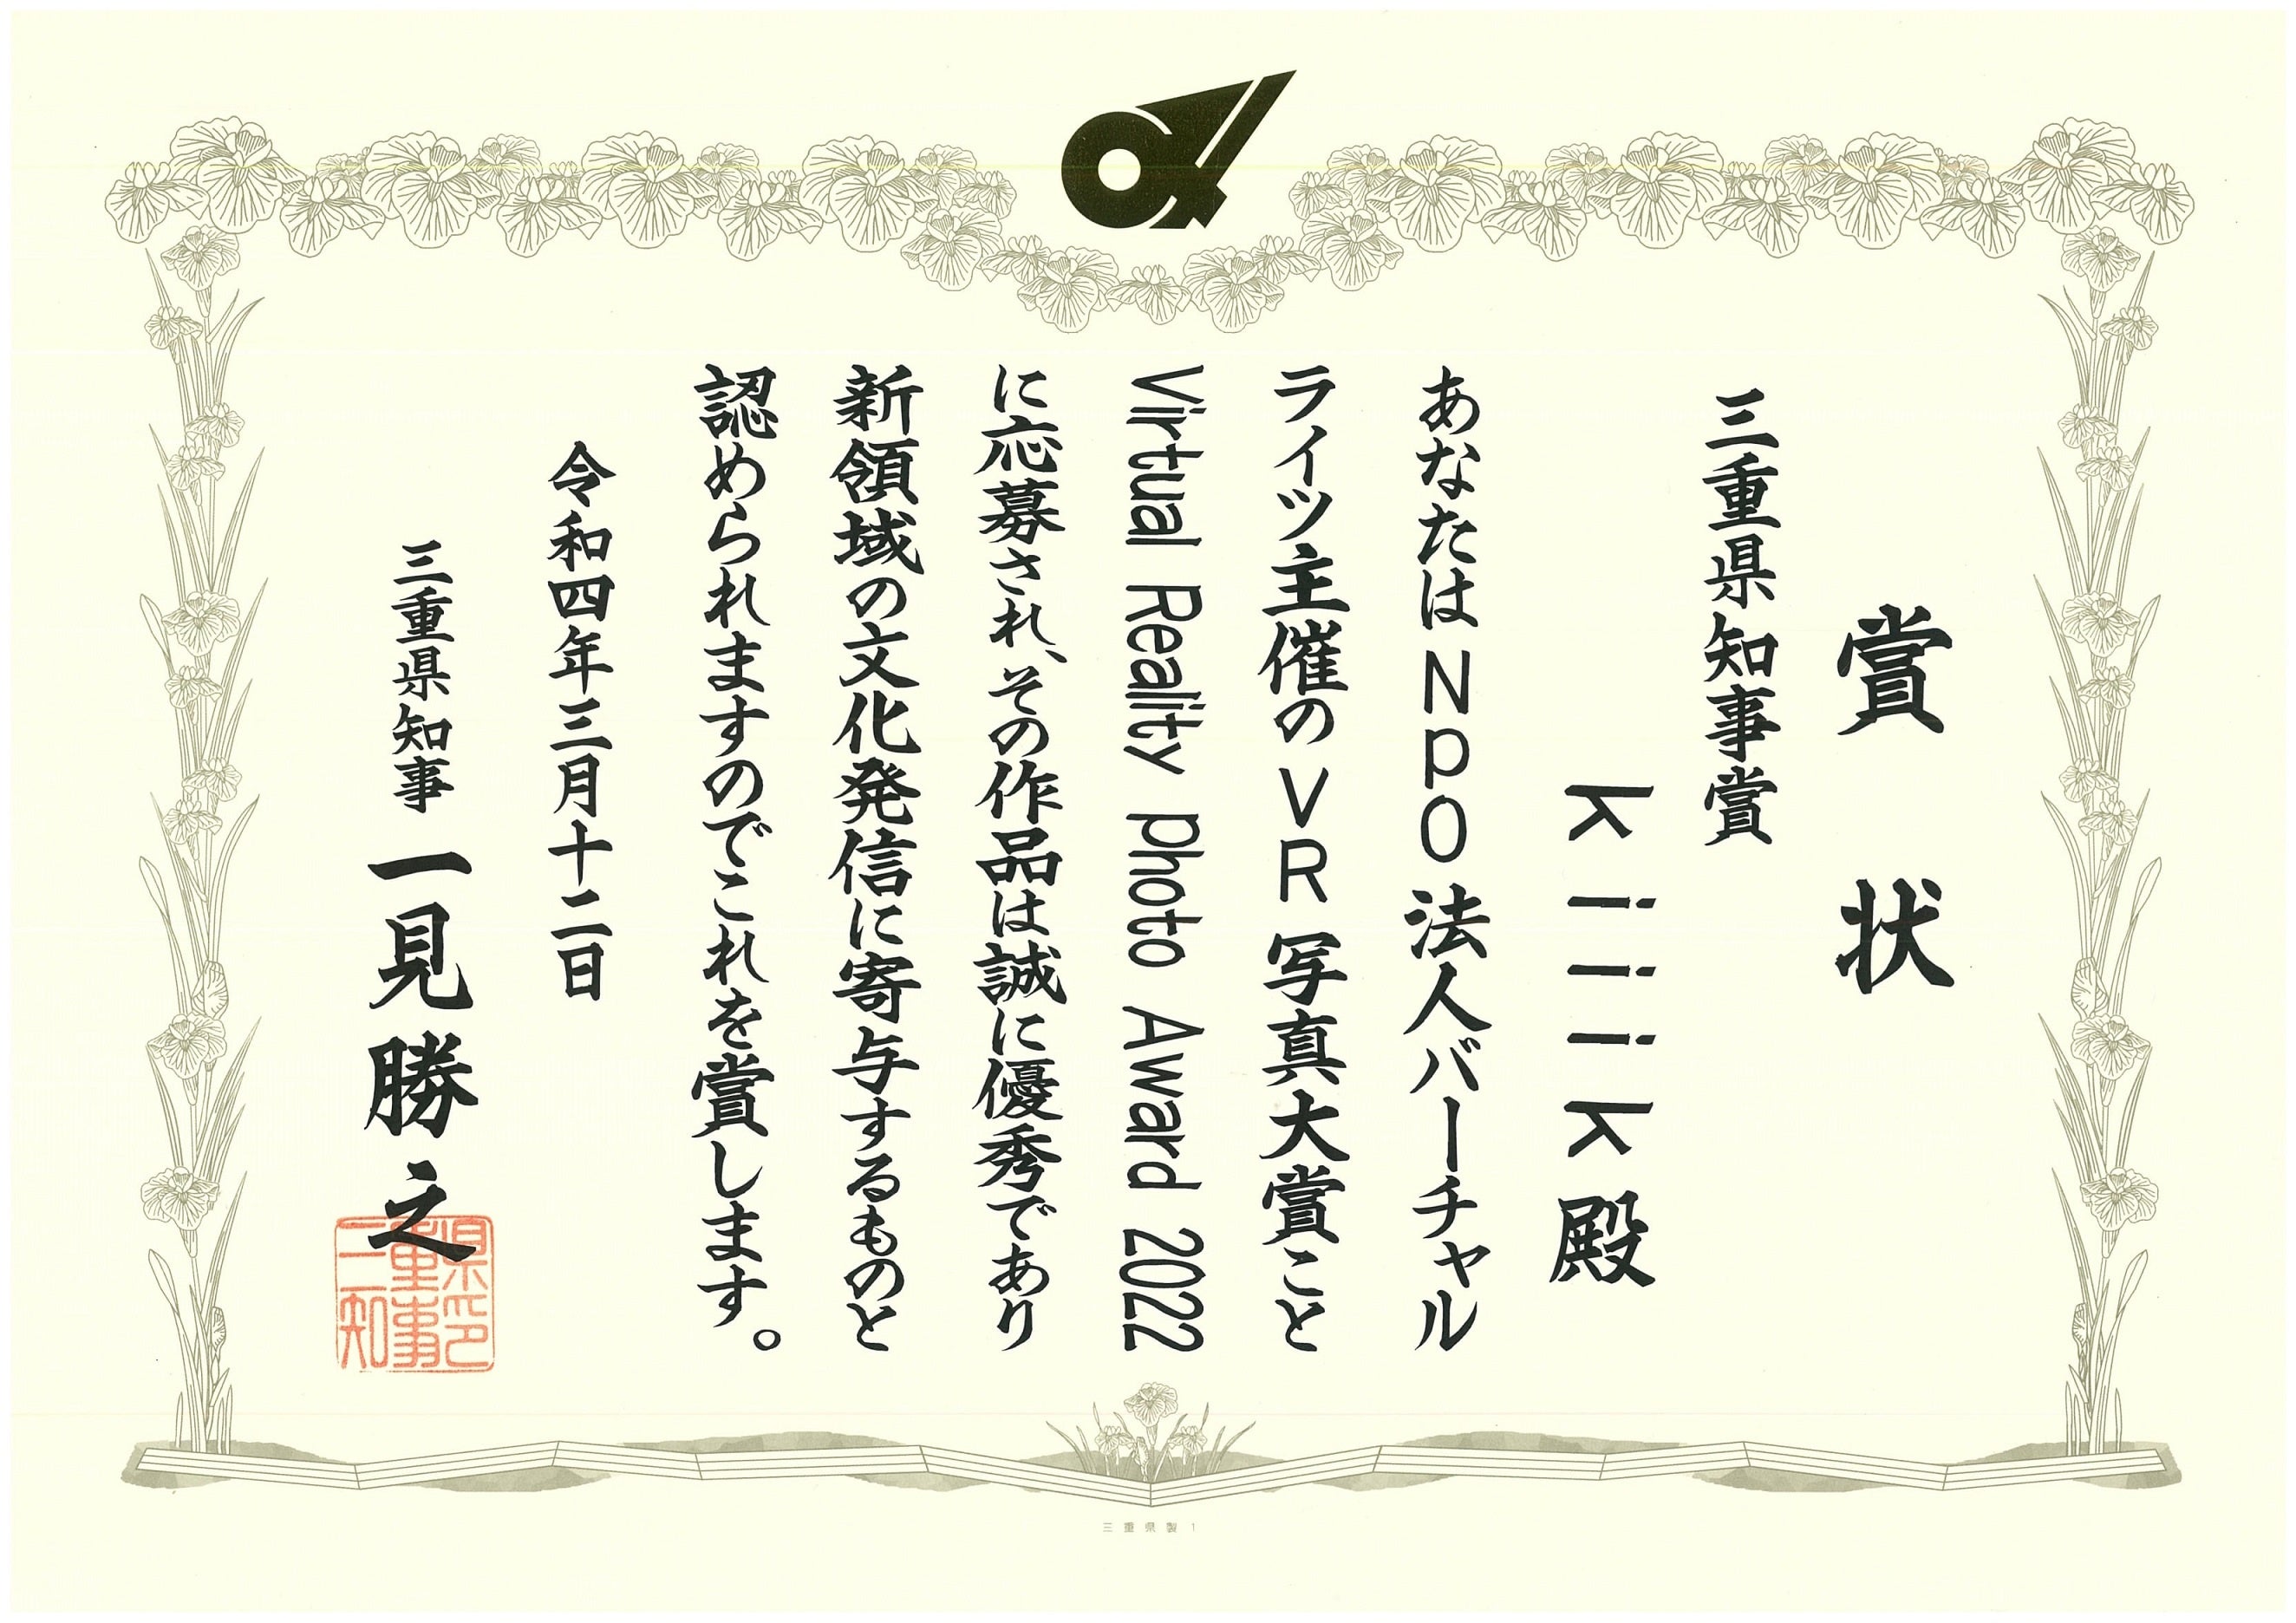 賞状
三重県知事賞
kiiik殿
あなたはNpO法人バーチャル
ライツ主催のVR写真大賞こと
Virtual Reality photo Award 2022
に応募され、その作品は誠に優秀であり
新領域の文化発信に寄与するものと
認められますのでこれを賞します。
令和四年三月十二日
三重県知事 一見勝之
三重県知事印
三重県製1